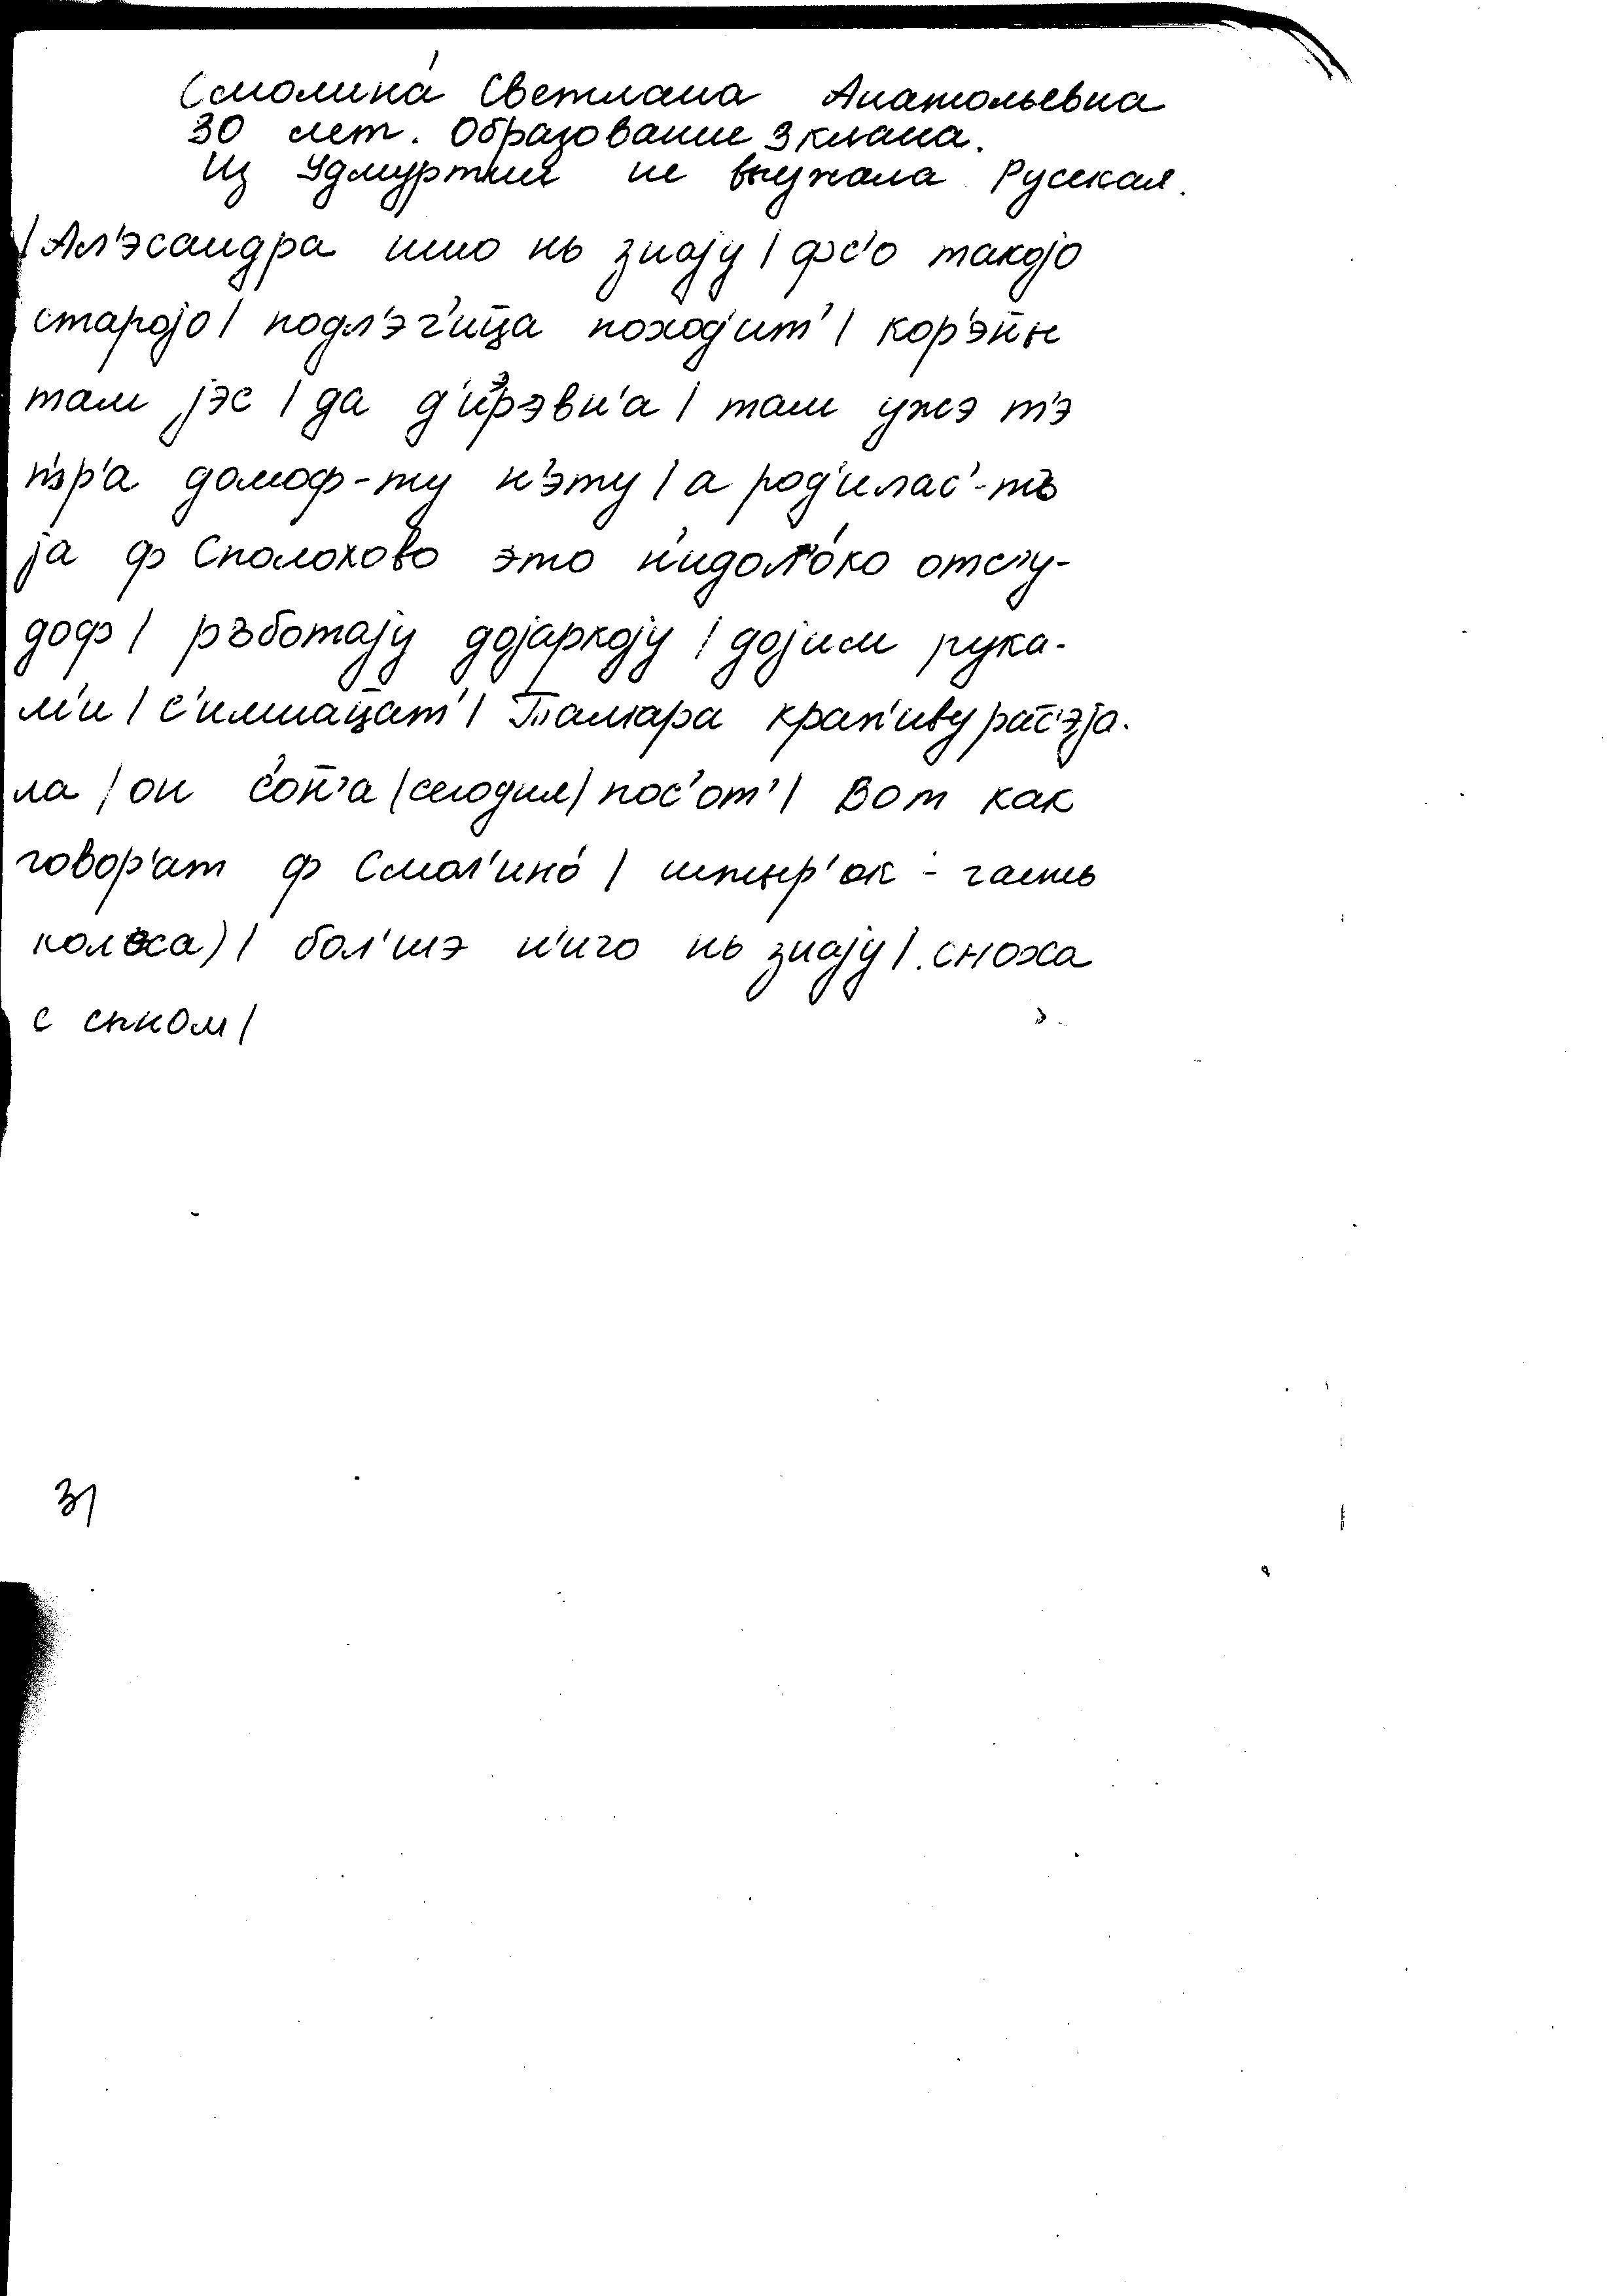 Смолина́ Светлана Анатольевна
30 лет. Образование 3 класса.
Из Удмуртии не выезжала. Русская.
/Ал'эсандра ишо нь знајy / фс'о такојо
старојо / подл'эг'ица поход'ит' / кор'эн̄ы
там јэс / да д'ир̄эвн'а / там ужэ т'э
п'эр'а домоф-ту н'эту / а род'илас'-тъ
ја ф Сполохово это н'идол'о́ко отс'у-
доф / ръботајy дојаркојy / дојим рука-
м'и / с'имнац̄ат' / Тамара крап'иву рас̄'эја-
ла / он с'о́н̄'а (сегодня) пос'от' / Вот как
говор'ат ф Смол'ино́ / штыр'ок - часть
колеса) / бол'шэ н'иго нь знајy /. сноха
с сыном /
31